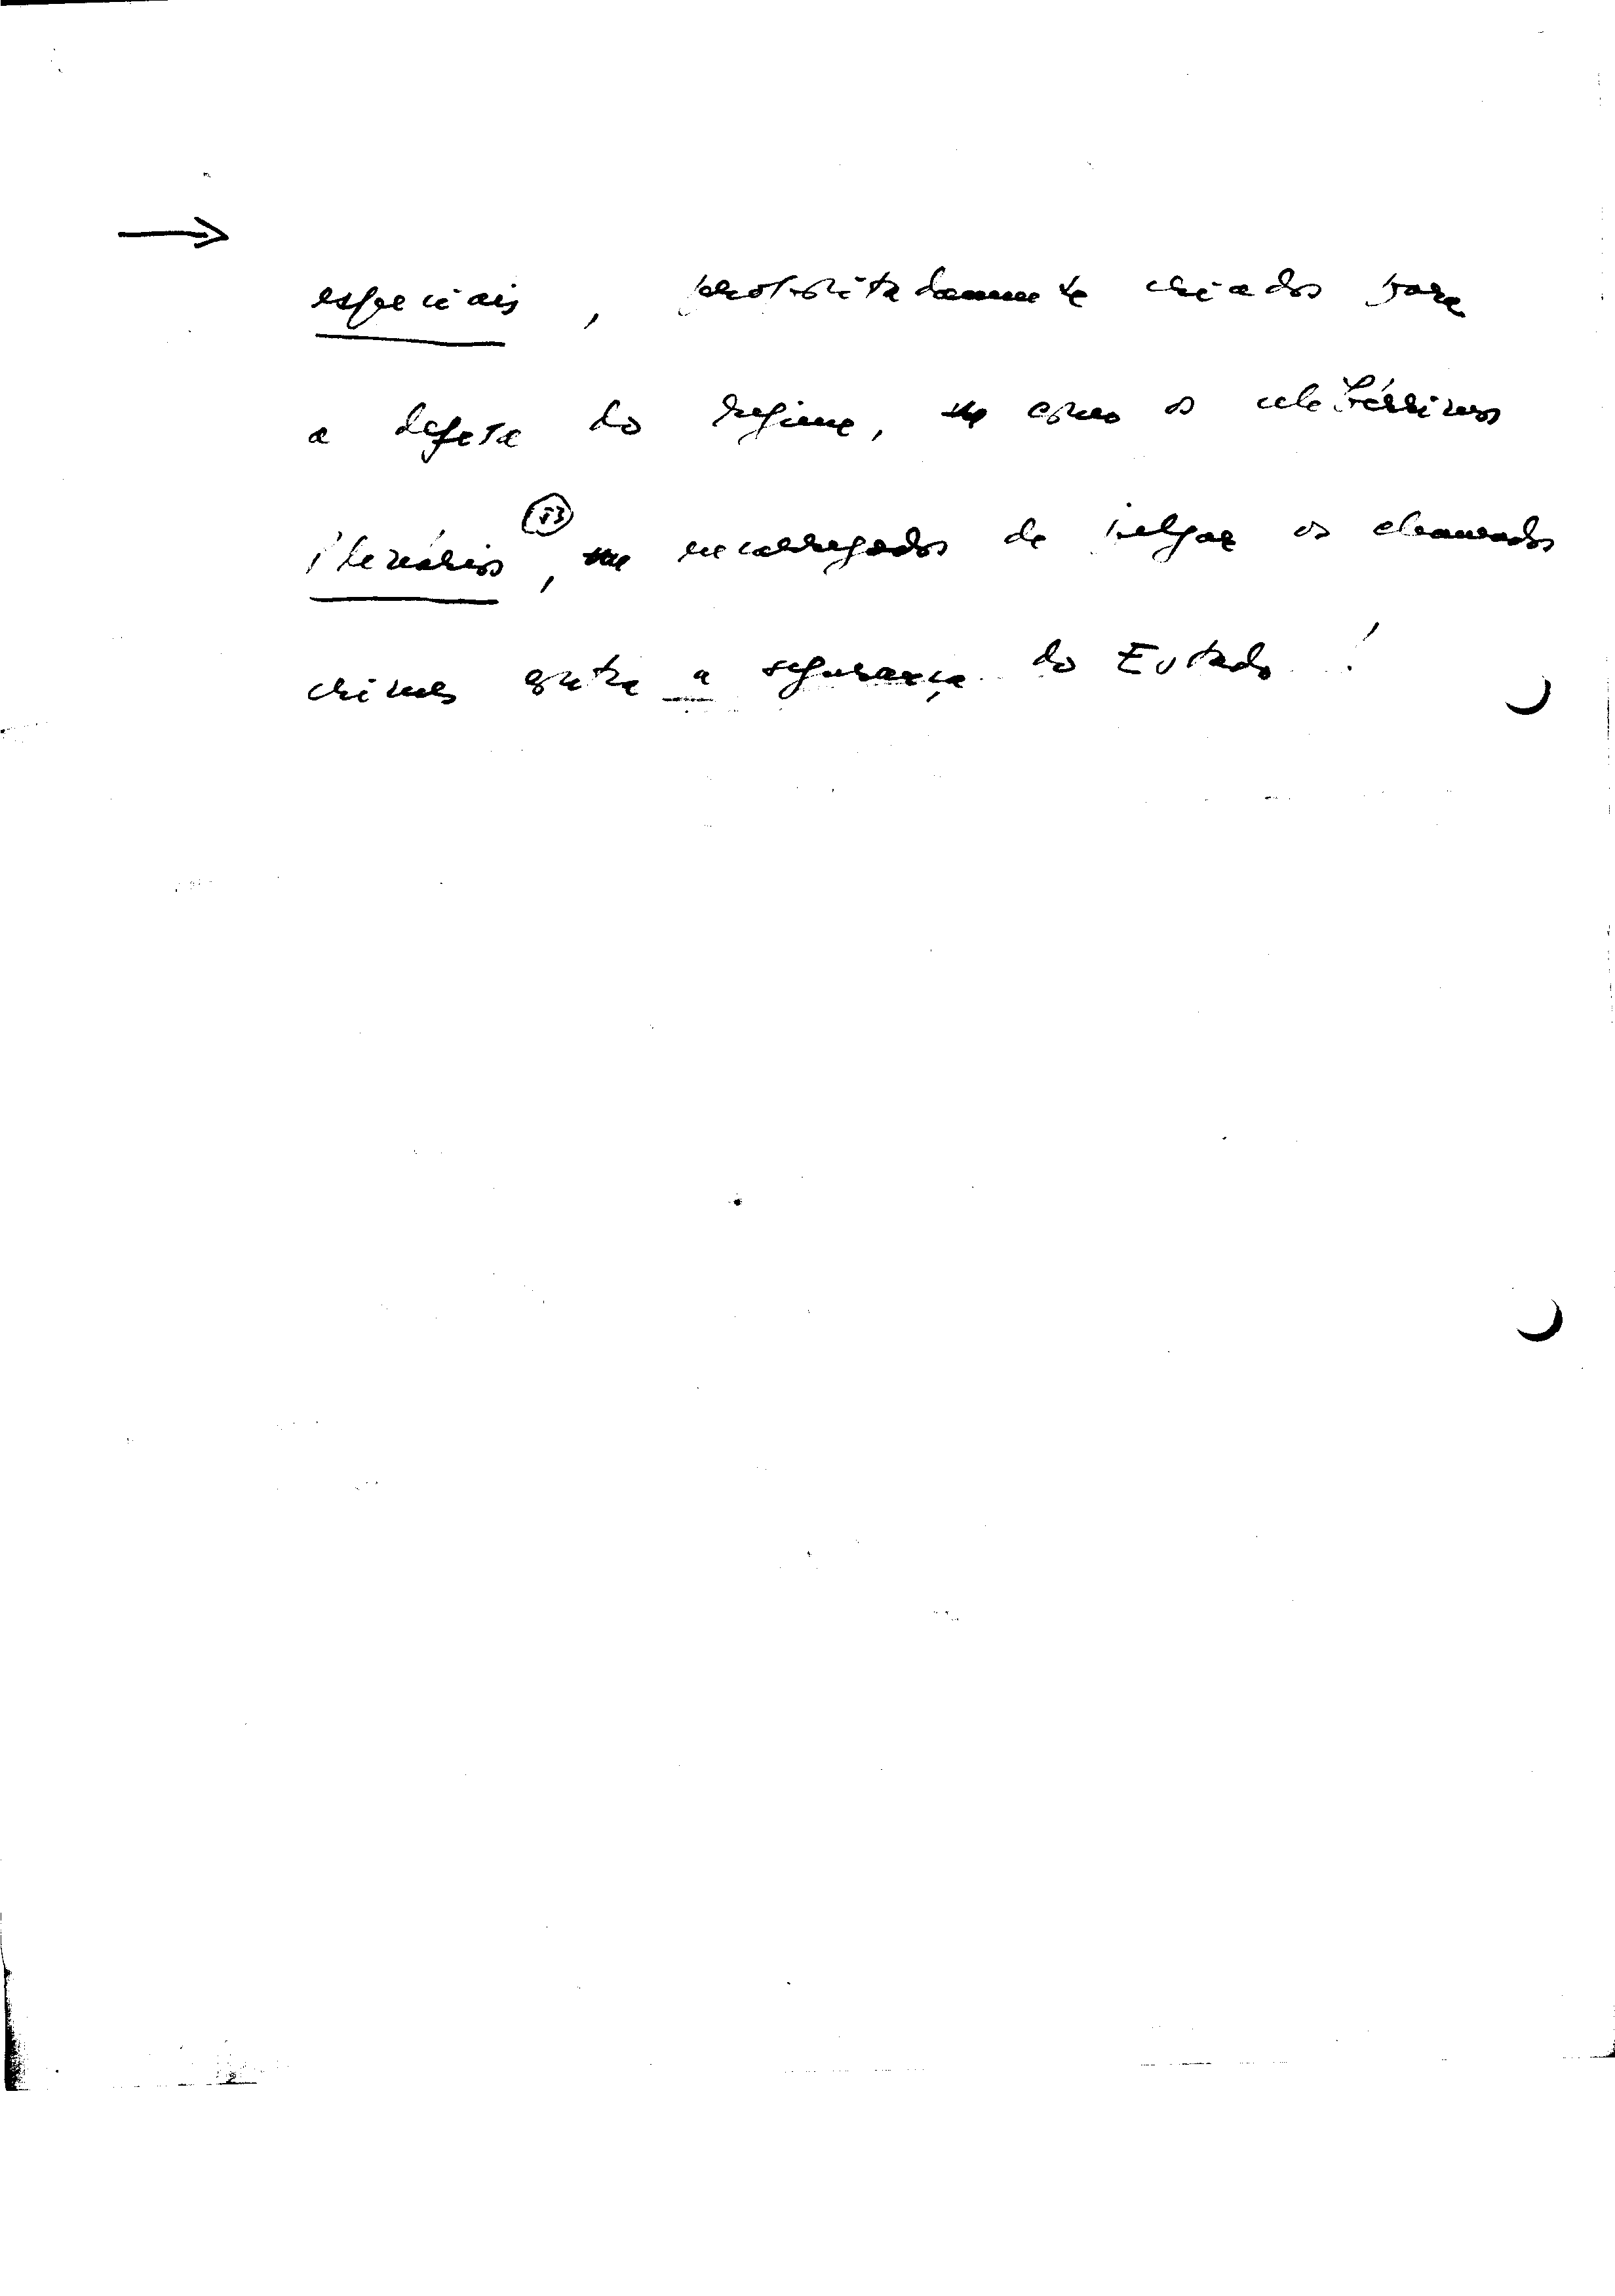 →
especiais, propositadamente criados para
a defesa do regime, como os celebérrimos
Plenários (53), encarregados de julgar os chamados
crimes contra a segurança do Estado!